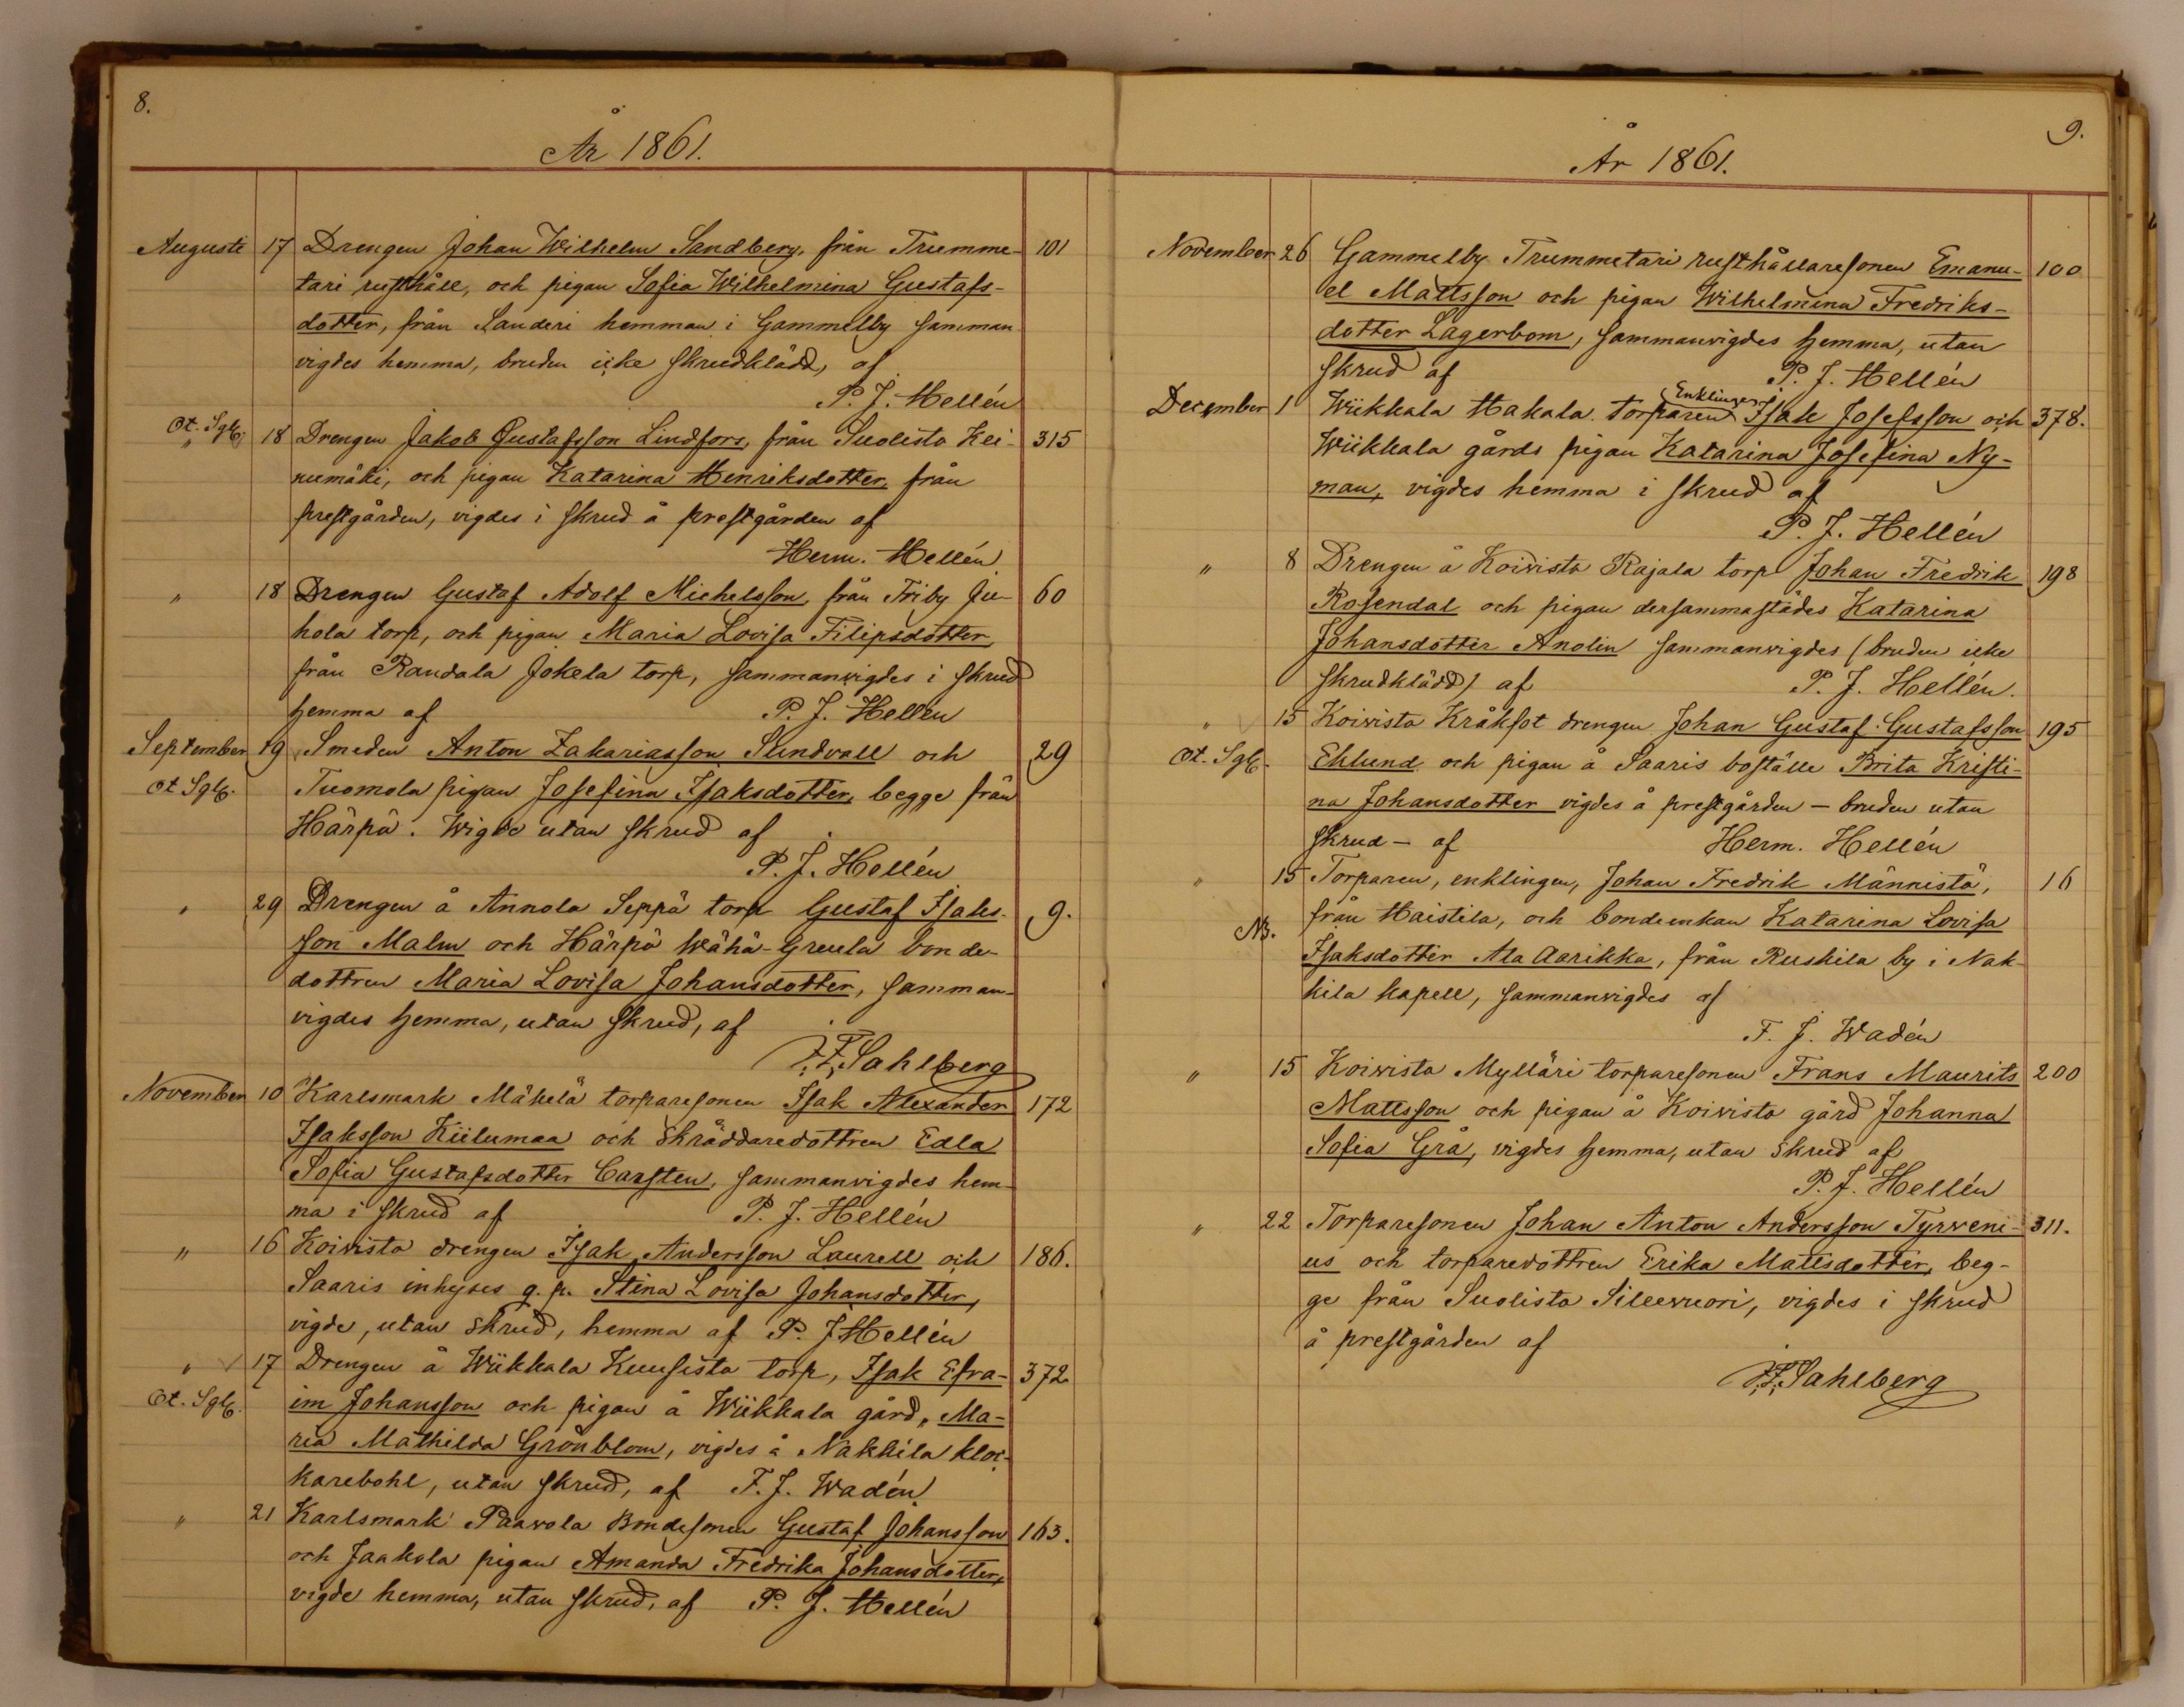 8.
År 1861.
Augusti 17 Drengen Johan Wilhelm Sandberg, från Trumme- 101
tari rusthåll, och pigan Sofia Wilhelmina Gustafs-
dotter, från Sanderi hemman i Gammelby samman
vigdes hemma, bruden icke skrudklädd, af
P. J. Hellén
Ot. Sgb.
" 18 Drengen Jakob Gustafsson Lindfors, från Suolisto Kei- 315
numäki, och pigan Katarina Henriksdotter, från
prestgården, vigdes i skrud å prestgården af
Herm. Hellén
" 18 Drengen Gustaf Adolf Michelsson, från Friby Ju- 60
hola torp, och pigan Maria Lovisa Filipsdotter,
från Randala Jokela torp, sammanvigdes i skrud
hemma af P. J. Hellén
September 19 Smeden Anton Zakariasson Sundvall och 29
Ot Sgb. Tuomola pigan Josefina Isaksdotter, begge från
Härpö. Wigde utan skrud af
P. J. Hellén
" 29 Drengen å Annola Seppä torp Gustaf Isaks- 9.
son Malm och Härpö Wähä-Greula bonde-
dottren Maria Lovisa Johansdotter, samman-
vigdes hemma, utan skrud, af
F. F. Sahlberg
November 10 Karlsmark Mäkelä torparesonen Isak Alexander 172
Isaksson Kiilumaa och Skräddaredottren Edla
Sofia Gustafsdotter Carsten, sammanvigdes hem-
ma i skrud af P. J. Hellén
" 16 Koivisto drengen Isak Andersson Laurell och 186.
Saaris inhyses q. p. Stina Lovisa Johansdotter,
vigde, utan skrud, hemma af P. J. Hellén
" 17 Drengen å Wiikkala Kuusisto torp, Isak Efra- 372
Ot. Sgb. im Johansson och pigan å Wiikkala gård, Ma-
ria Mathilda Grönblom, vigdes å Nakkila kloc-
karebohl, utan skrud, af F. J. Wadén
" 21 Karlsmark Paavola Bondesonen Gustaf Johansson 163.
och Jaakola pigan Amanda Fredrika Johansdotter,
vigde hemma, utan skrud, af P. J. Hellén
9.
År 1861.
November 26 Gammelby Trummetari rusthållaresonen Emanu- 100
el Mattsson och pigan Wilhelmina Fredriks-
dotter Lagerbom, sammanvigdes hemma, utan
skrud af P. J. Hellén
Enklingen
December 1 Wiikkala Hakala torparen Isak Josefsson och 378.
Wiikkala gårds pigan Katarina Josefina Ny-
man, vigdes hemma i skrud af
P. J. Hellén
" 8 Drengen å Koivisto Rajala torp Johan Fredrik 198
Rosendal och pigan dersammastädes Katarina
Johansdotter Anolin sammanvigdes (bruden icke
skrudklädd) af P. J. Hellén.
" 15 Koivisto Kråkfot drengen Johan Gustaf Gustafsson 195
Ot. Sgb. Eklund och pigan å Saaris boställe Brita Kristi-
na Johansdotter vigdes å prestgården – bruden utan
skrud – af Herm. Hellén
" 15 Torparen, enklingen, Johan Fredrik Männistö, 16
NB. från Haistila, och bondeenkan Katarina Lovisa
Isaksdotter Ala Aarikka, från Ruskila by i Nak-
kila kapell, sammanvigdes af
F. J. Wadén
" 15 Koivisto Mylläri torparesonen Frans Maurits 200
Mattsson och pigan å Koivisto gård Johanna
Sofia Grå, vigdes hemma, utan skrud af
P. J. Hellén
" 22 Torparesonen Johan Anton Andersson Tyrveni- 311.
us och torparedottren Erika Mattsdotter, beg-
ge från Suolisto Sileevuori, vigdes i skrud
å prestgården af
F. F. Sahlberg